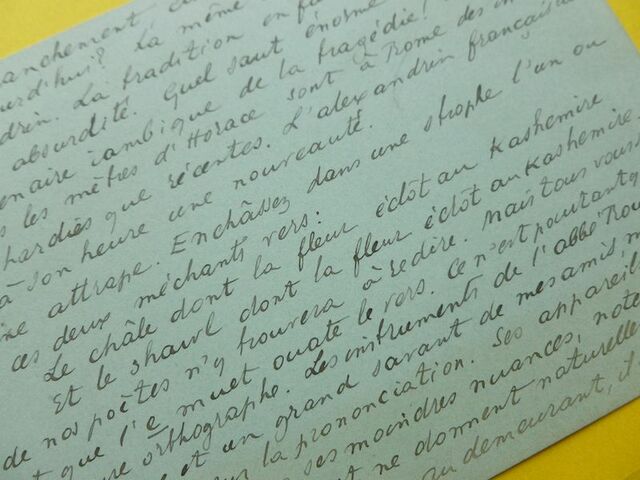 anchement
urd'hui? La même
drin. La tradition en
absurdité. Quel saut énorme
enaire iambique de la tragédie!
les mètres d'Horace sont à Rome des
hardies que récentes. L'alexandrin français
à son heure une nouveauté.
ne attrape. Enchâssez dans une strophe l'un ou
ces deux méchants vers:
Le châle dont la fleur éclôt au Kashemire
Et le shawl dont la fleur éclôt au Kashemire.
de nos poètes n'y trouvera à redire. Mais tous vous
t que l'e muet ouate le vers. Ce n'est pourtant q
ure orthographe. Les instruments de l'abbé Rou
e et un grand savant de mes amis, m
ur la prononciation. Ses appareil
ses moindres nuances, note
t ne donnent naturelle
au demeurant, il